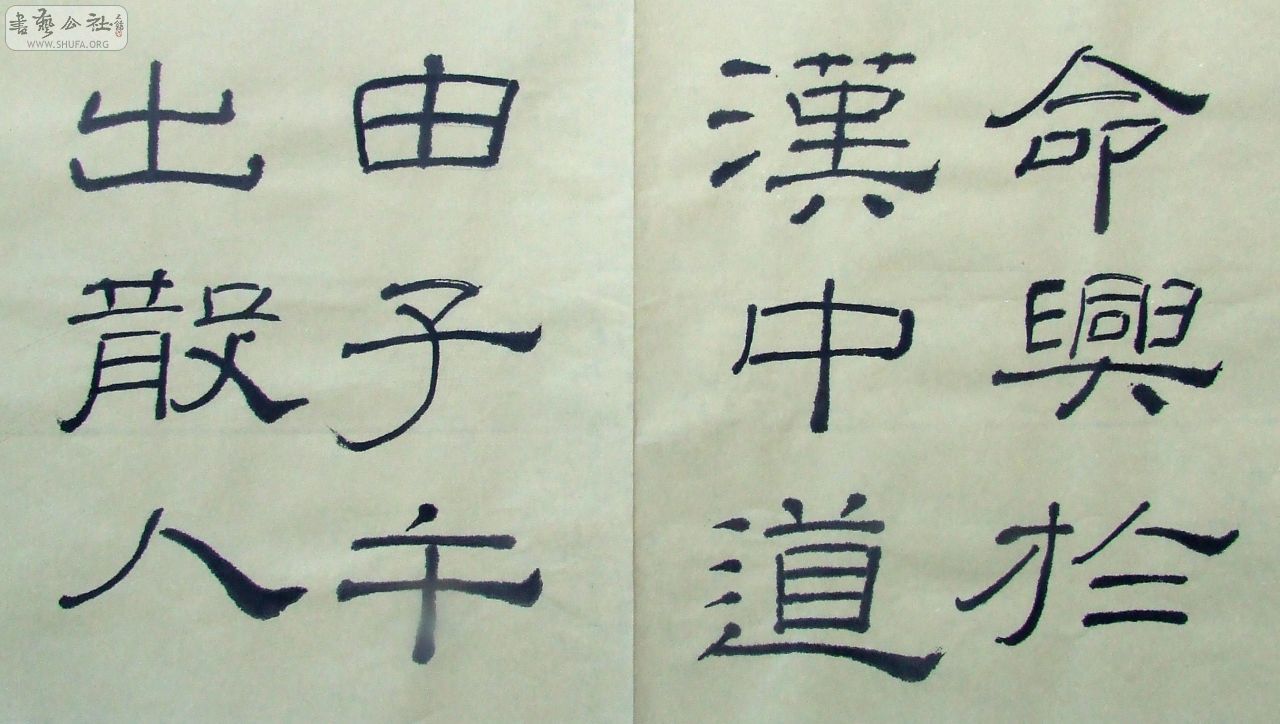 命興於
漢中道
由子午
出散入
書藝公社
WWW.SHUFA.ORG